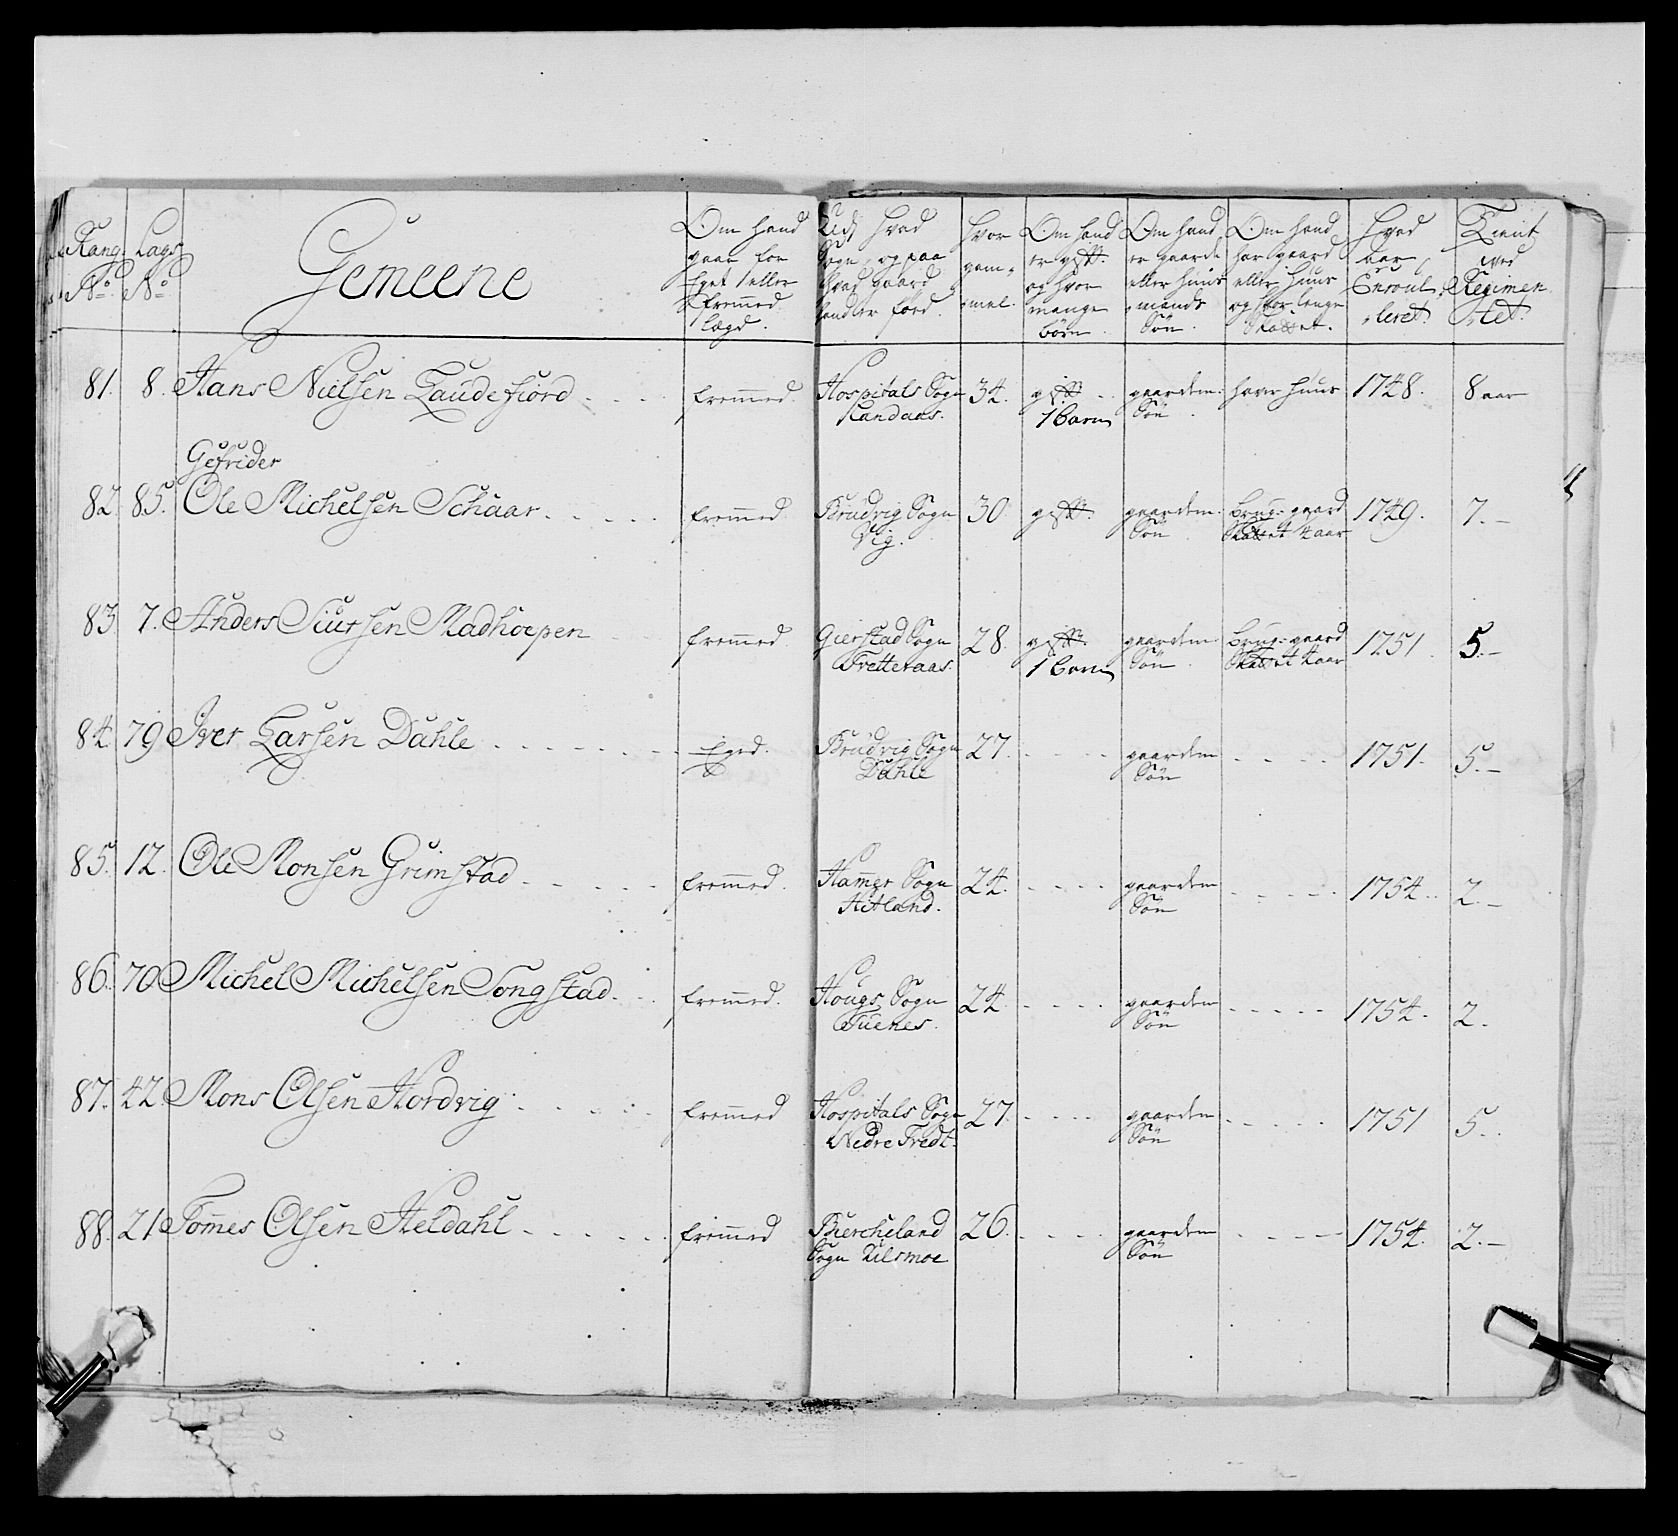 Rang No. | Lags No. | Gemeene | Om hand gaar for Eget eller fremmed lægd. | Udj hvad Sogn, og paa hvad gaard hand er föed. | Hvor gam- mel. | Om hand er gift. og hvor mange börn. | Om hand er gaards eller huus mands Sön. | Om hand har gaard eller huus og hvor lenge Skattet. | Hvad aar Enroul- leret. | Tient ved Regimen- tet.
81. | 8. | Hans Nielsen Laudefiord | fremmed. | Hospitals Sogn Randaas. | 34. | gift 1 barn | gaardem: Sön. | haver huus | 1748. | 8 aar
Gefrider
82. | 85. | Ole Michelsen Schaar | fremmed. | Brudvig Sogn Vig. | 30 | gift. | gaardem: Sön | brug: gaard Skattet 4 aar | 1749. | 7.-
83 | 7. | Anders Siursen Madhoepen | fremmed | Gierstad Sogn Tretteraas | 28. | gift. 1 barn | gaardem: Sön. | brug: gaard Skattet 4 aar | 1751. | 5.-
84. | 79 | Iver Larsen Dahle | Eged. | Brudvig Sogn Dahle | 27. | gaardem Sön | 1751. | 5.-
85. | 12. | Ole Monsen Grimstad | fremmed. | Hammer Sogn Hitland. | 24. | gaardem Sön | 1754. | 2.-
86. | 70 | Michel Michelsen Songstad | fremmed. | Hougs Sogn Tuenes. | 24. | gaardem Sön | 1754. | 2.
87. | 42. | Mons Olsen Nordvig | fremmed | Hospitals Sogn Nedre Tredt. | 27. | gaardem Sön | 1751 | 5.
88. | 21 | Tommes Olsen Heldahl | fremmed | Biercheland Sogn Kilsmoe | 26. | gaardem Sön | 1754. | 2.-